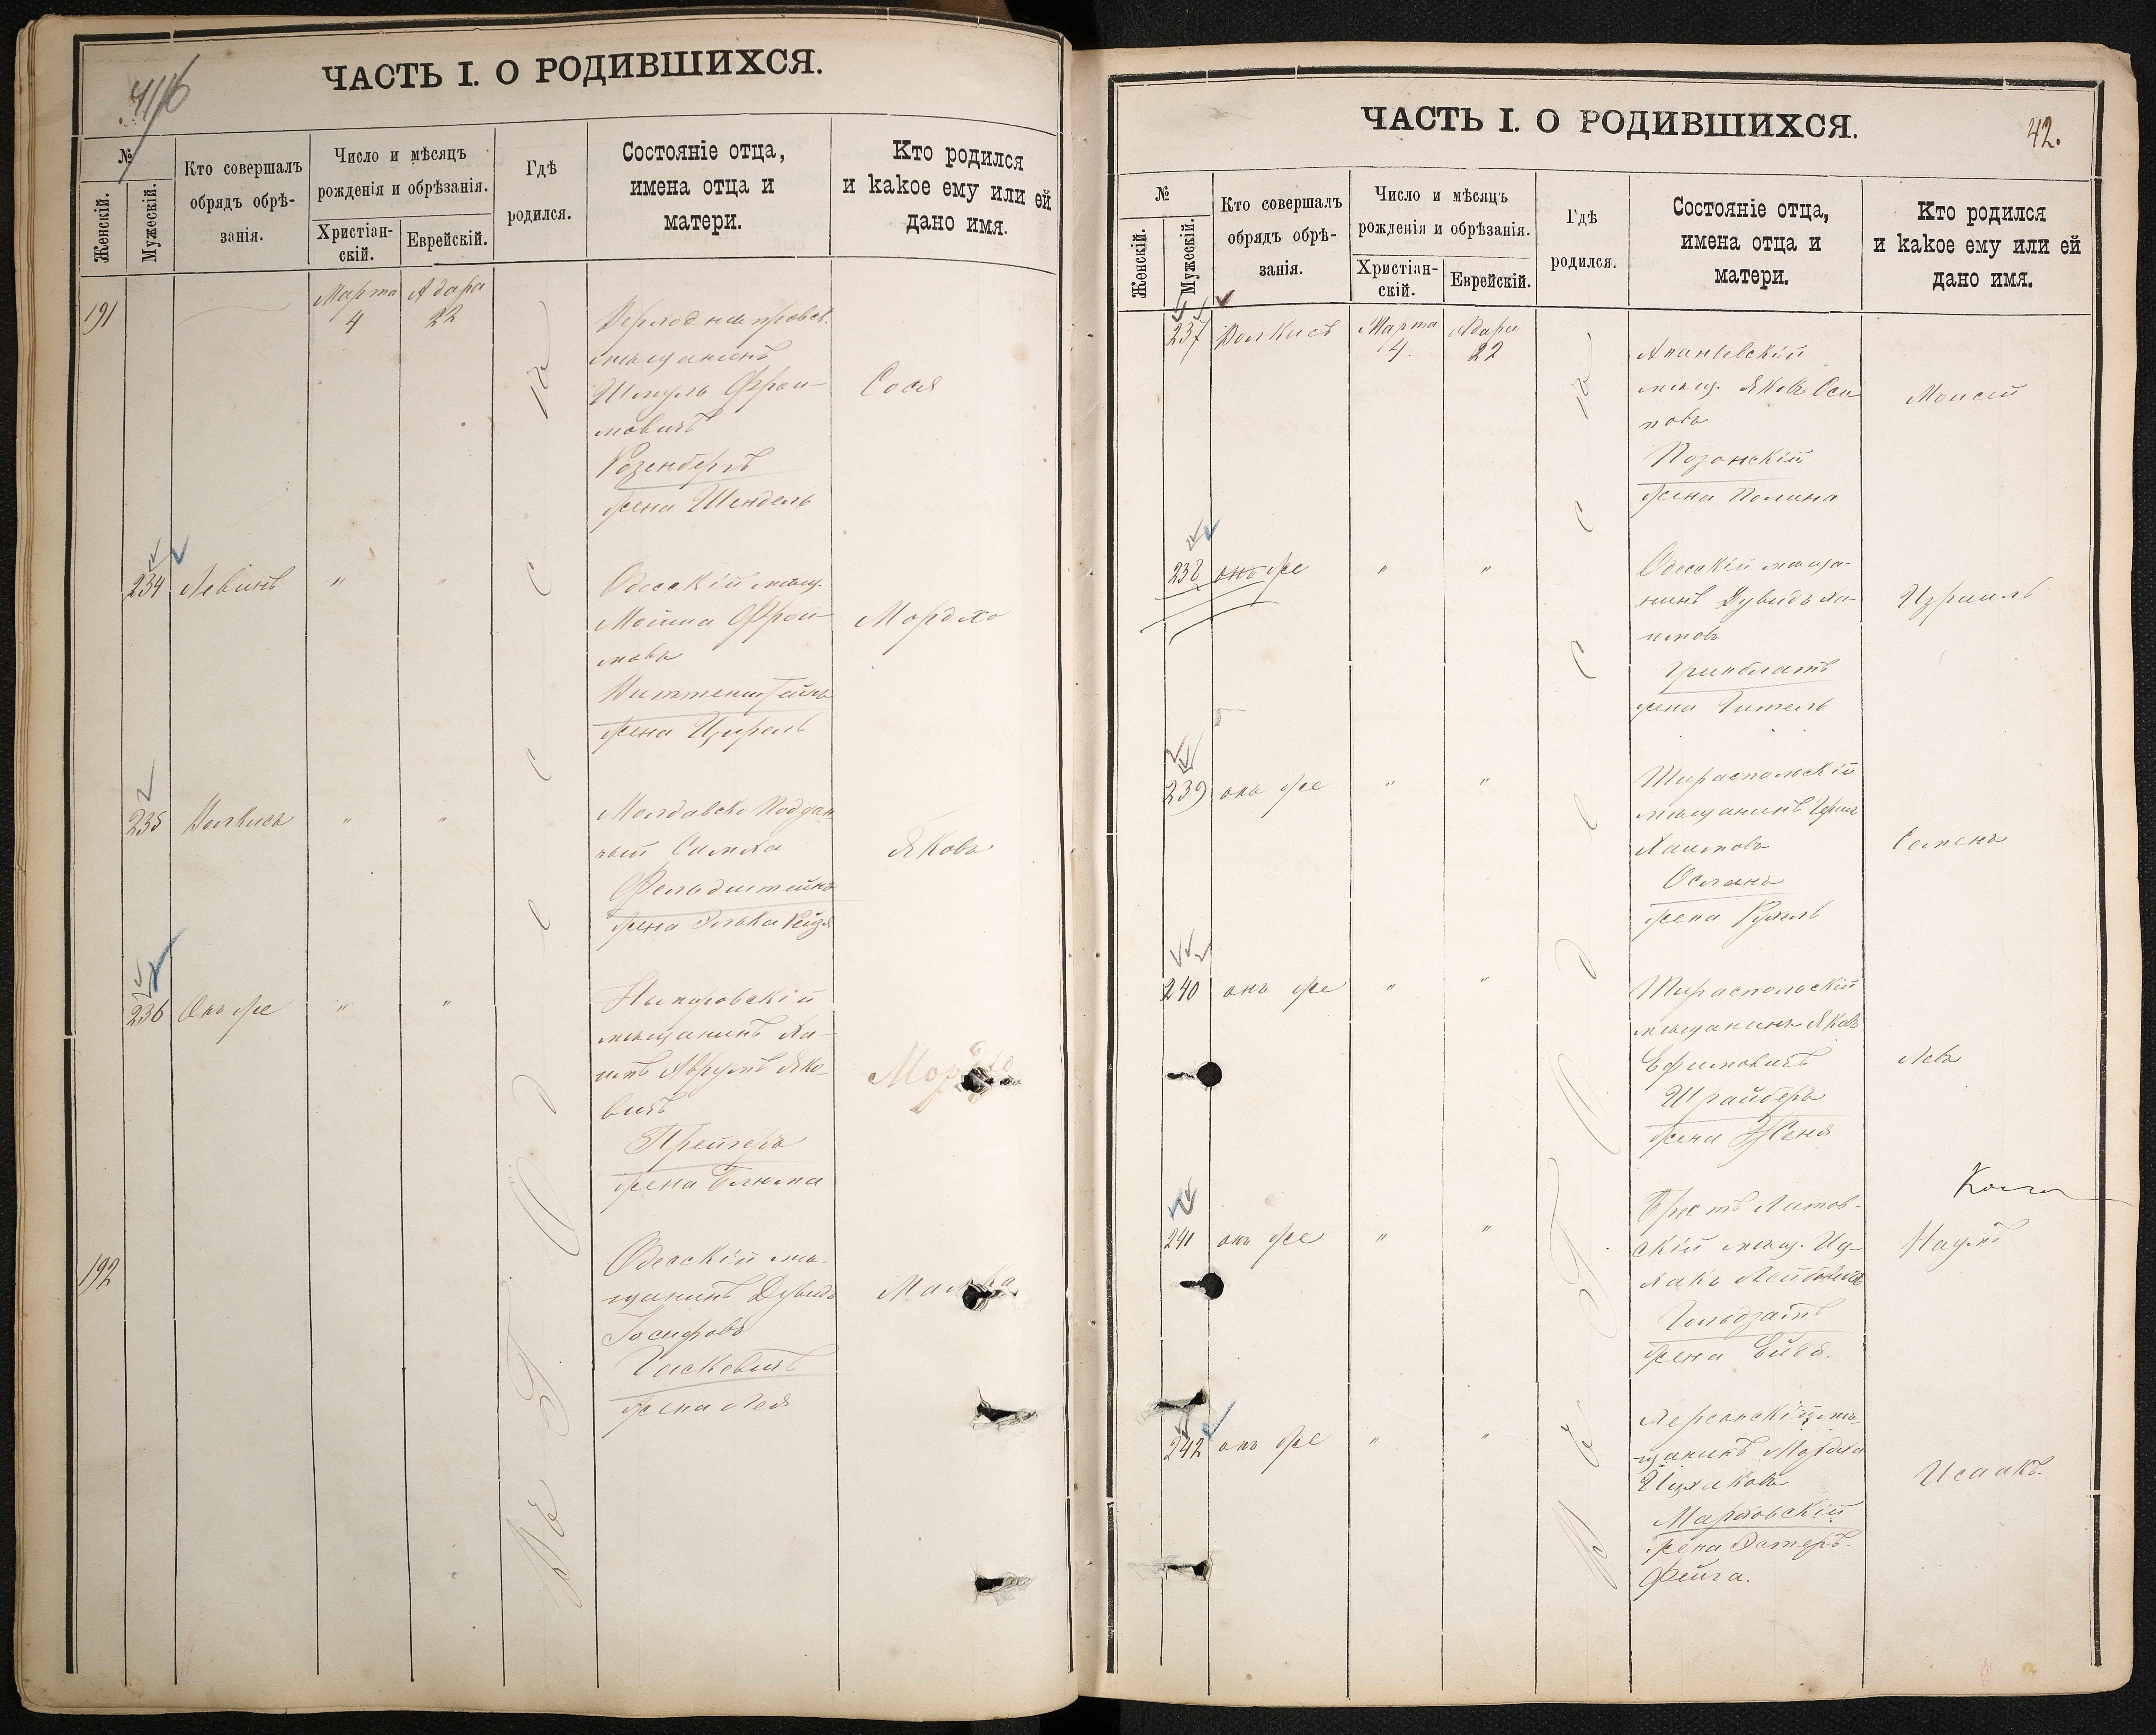 41/6
ЧАСТЬ I. О РОДИВШИХСЯ.
№
Женскій.
Мужескій.
Кто совершалъ
обрядъ обрѣ-
занія.
Число и мѣсяцъ
рожденія и обрѣзанія.
Христіан-
скій.
Еврейскій.
Гдѣ
родился.
Состояніе отца,
имена отца и
матери.
Кто родился
и какое ему или ей
дано имя.
Въ г. Одессѣ
191
Марта
4
Адара
22
Верходнѣпровск.
мѣщанинъ
Шмуль Фрои-
мовичъ
Розенбергъ
жена Шендель
Сося
234
Левинъ
"
"
Одесскій мѣщ.
Мошка Фрои-
мовъ
Виттенштейнъ
жена Цирель
Мордхо
235
Волкисъ
"
"
Молдавско Поддан
ный Симха
Фельдштейнъ
жена Элька Рейзя
Яковъ
236
Онъ же
"
"
мѣщанинъ Ха-
имъ Аврумъ Яко-
вичъ
Прейгеръ
жена Блюма
Мордко
192
Одесскій мѣ-
щанинъ Дувидъ
Іосифовъ
Гаскевичъ
жена Лея
Малка
ЧАСТЬ I. О РОДИВШИХСЯ.
42.
№
Женскій.
Мужескій.
Кто совершалъ
обрядъ обрѣ-
занія.
Число и мѣсяцъ
рожденія и обрѣзанія.
Христіан-
скій.
Еврейскій.
Гдѣ
родился.
Состояніе отца,
имена отца и
матери.
Кто родился
и какое ему или ей
дано имя.
Въ г. Одессѣ
237
Волкисъ
Марта
4.
Адара
22
Ананьевскій
мѣщ. Яковъ Оси
повъ
Позонскій
жена Полина
Моисей
238
онъ же
"
"
Одесскій мѣща-
нинъ Дувидъ Ха-
имовъ
Гринблатъ
жена Гитель
Израиль
239
онъ же
"
"
Тираспольскій
мѣщанинъ Гершъ
Хаимовъ
Осланъ
жена Рухль
Семенъ
240
онъ же
"
"
Тираспольскій
мѣщанинъ Яковъ
Ефимовичъ
Шрайберъ
жена Женя
Левъ
241
онъ же
"
"
Брестъ Литов-
скій мѣщ. Иц-
хакъ Лейбовичъ
жена Ейдя.
Наумъ
242
онъ же
"
"
Херсонскій мѣ-
щанинъ Мордха
Ицхаковъ
Марховскій
жена Эстеръ-
Фейга.
Исаакъ.